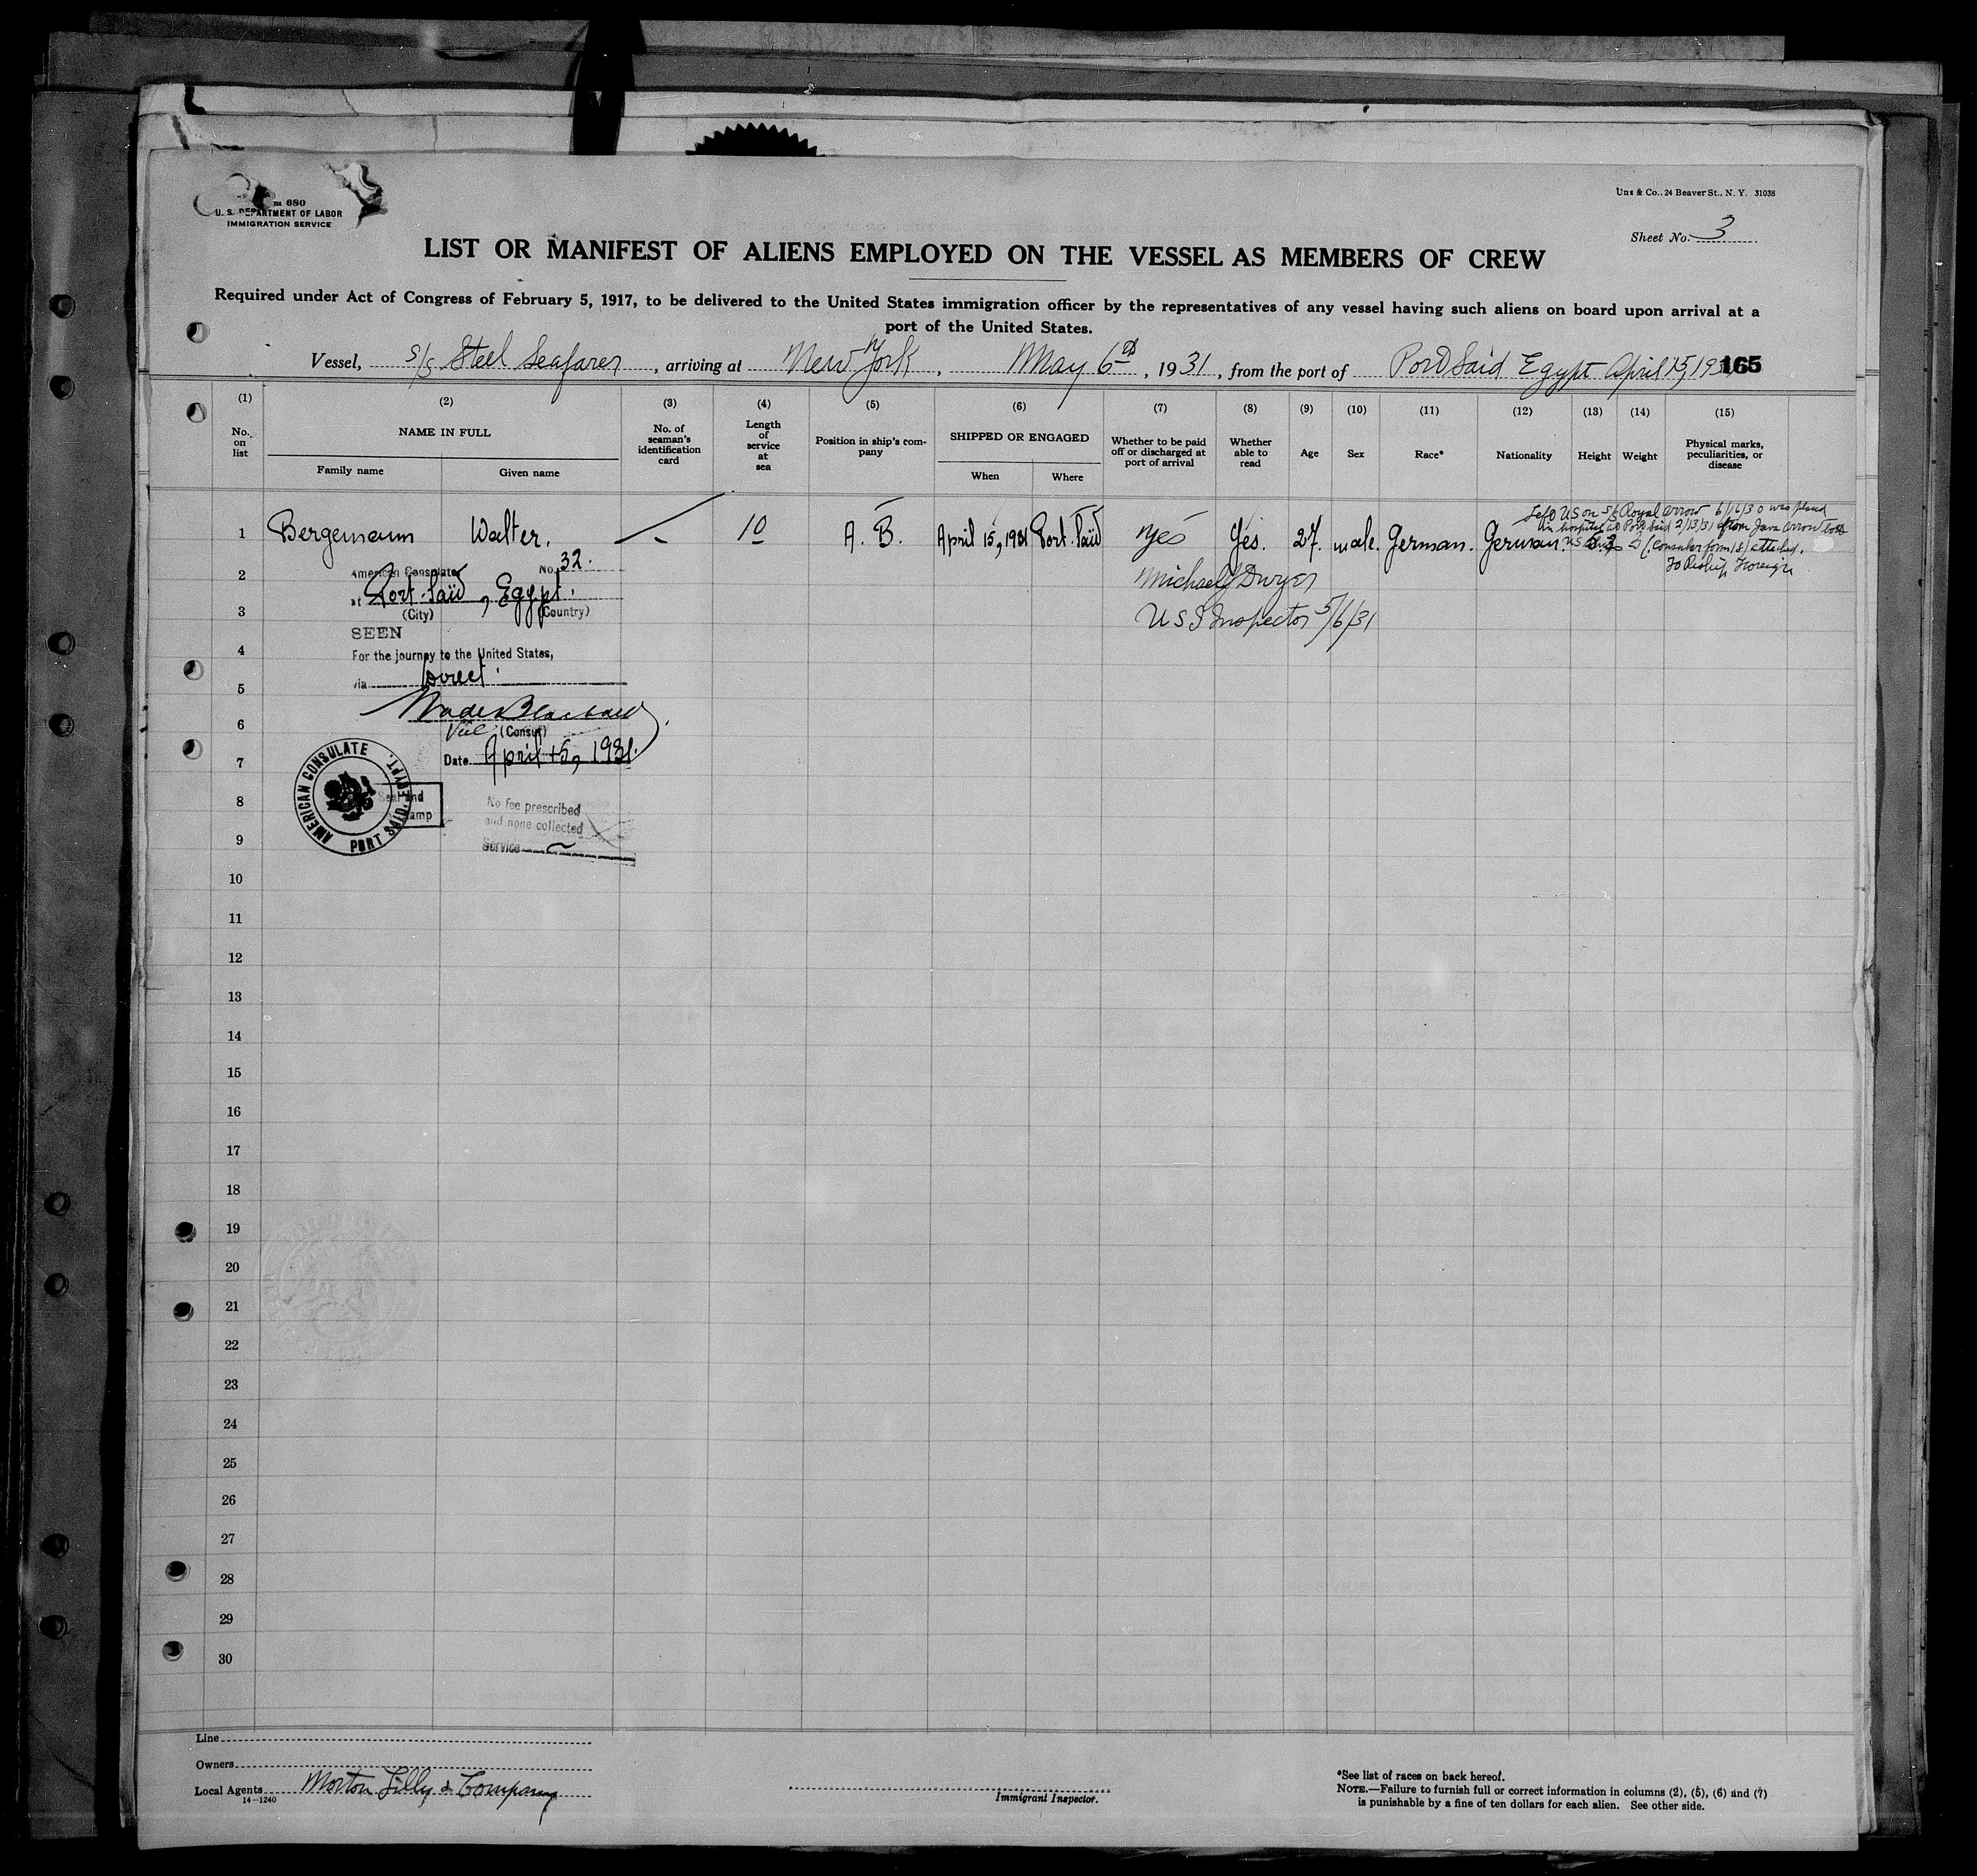 680
U. S. DEPARTMENT OF LABOR
IMMIGRATION SERVICE
24 Beaver St., N. Y. 31038
Sheet No. 3
LIST OR MANIFEST OF ALIENS EMPLOYED ON THE VESSEL AS MEMBERS OF CREW
Required under Act of Congress of February 5, 1917, to be delivered to the United States immigration officer by the representatives of any vessel having such aliens on board upon arrival at a
port of the United States.
Vessel, S/S Steel Seafarer, arriving at New York, May 6th, 1931, from the port of Port Said Egypt April 15, 193 165
(1) (2) (3) (4) (5) (6) (7) (8) (9) (10) (11) (12) (13) (14) (15)
No. on list
NAME IN FULL
Family name Given name
No. of seaman's identification card
Length of service at sea
Position in ship's company
SHIPPED OR ENGAGED
When Where
Whether to be paid off or discharged at port of arrival
Whether able to read
Age
Sex
Race*
Nationality
Height
Weight
Physical marks, peculiarities, or disease
Left US on SS Royal Arrow 6/16/30 was placed
in hospital at Port Said 2/13/31 from Java Arrow
1 Bergemann Walter. 10 A. B. April 15, 1931 Port-Saïd yes Yes. 27. male. German. German.
(Consular form 18) attached.
To Reship Foreign
2 American Consulate No. 32.
Michael J Dwyer
at Port-Saïd, Egypt.
3 (City) (Country)
U S I Inspector 5/6/31
SEEN
4 For the journey to the United States,
via direct.
5
6 Vice (Consul)
7 Date April 15, 1931.
AMERICAN CONSULATE PORT SAID, EGYPT.
8 Seal and
No fee prescribed
and none collected
9 Service
10
11
12
13
14
15
16
17
18
19
20
21
22
23
24
25
26
27
28
29
30
Line
Owners
Local Agents Morton Lilly & Company
14-1240
Immigrant Inspector.
*See list of races on back hereof.
NOTE.—Failure to furnish full or correct information in columns (2), (5), (6) and (7)
is punishable by a fine of ten dollars for each alien. See other side.